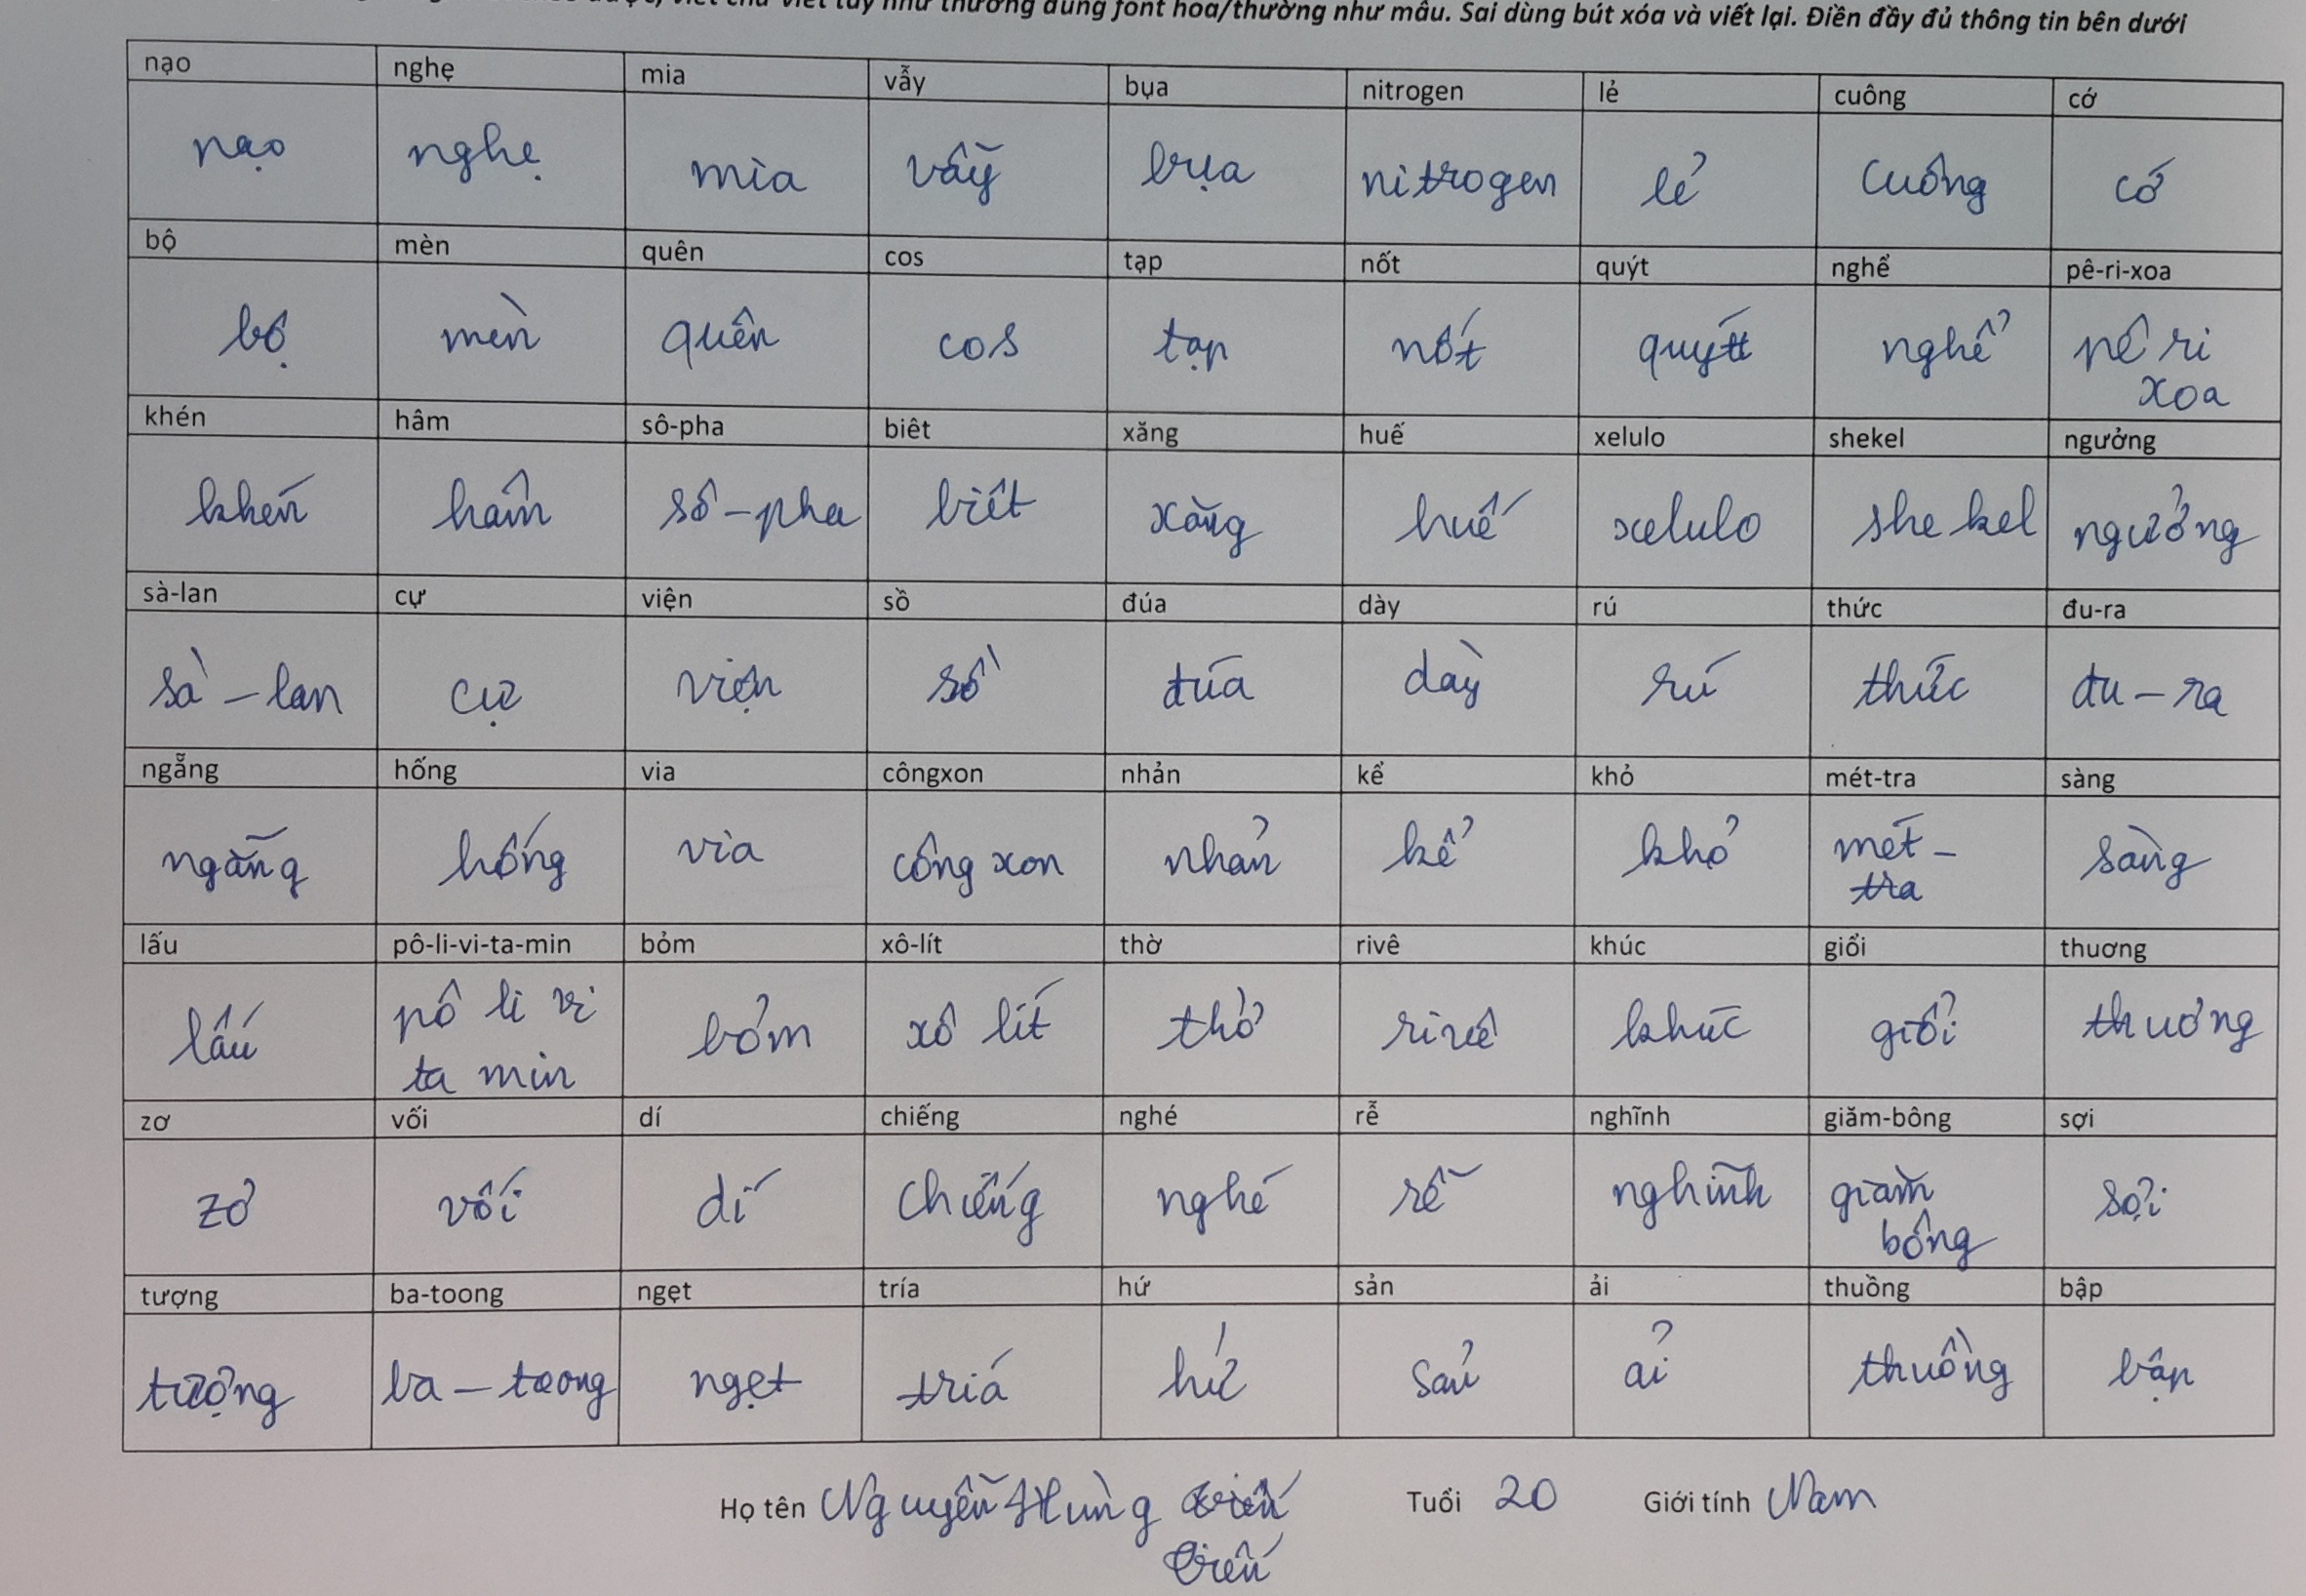 viết chữ viết tay như thường dùng font hoa/thường như mẫu. Sai dùng bút xóa và viết lại. Điền đầy đủ thông tin bên dưới
nạo nghẹ mia vẫy bụa nitrogen lẻ cuông cớ
nạo nghẹ mia vẫy bụa nitrogen lẻ cuông cớ
bộ mèn quên cos tạp nốt quýt nghể pê-ri-xoa
bộ mèn quên cos tạp nốt quýt nghể pê ri
xoa
khén hâm sô-pha biêt xăng huế xelulo shekel ngưởng
khén hâm sô-pha biêt xăng huế xelulo shekel ngưởng
sà-lan cự viện sồ đúa dày rú thức đu-ra
sà-lan cự viện sồ đúa dày rú thức đu-ra
ngẵng hống via côngxon nhản kể khỏ mét-tra sàng
ngẵng hống via công xon nhản kể khỏ mét-
tra sàng
lấu pô-li-vi-ta-min bỏm xô-lít thờ rivê khúc giổi thuơng
lấu pô li vi bỏm xô lít thờ rivê khúc giổi thuơng
ta min
zơ vối dí chiếng nghé rễ nghĩnh giăm-bông sợi
zơ vối dí chiếng nghé rễ nghĩnh giăm sợi
bông
tượng ba-toong ngẹt tría hứ sản ải thuồng bập
tượng ba-toong ngẹt tría hứ sản ải thuồng bập
Họ tên Nguyễn Hùng Tuổi 20 Giới tính Nam